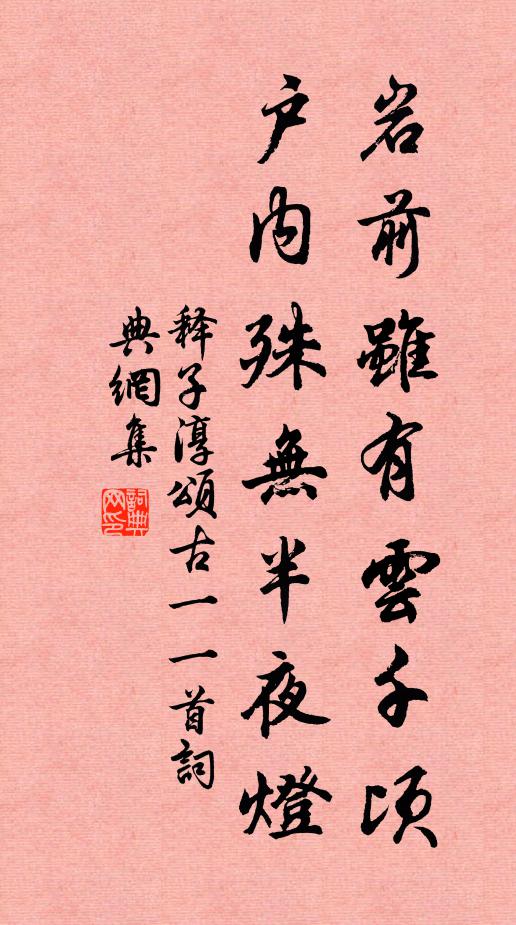 岩前雖有雲千頃
户内殊無半夜燈
释子淳頌古一一首詞
典網集
詞典網印